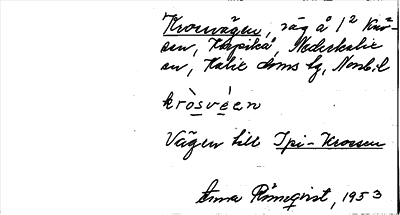 Krosvägen, väg å 1² Kros-
sen, Kåpikå, Nederkalix
sn, Kalix doms lg, Nonb.l
kròsvéen
Vägen till Ipi-Krossen
Anna Rönnqvist, 1953